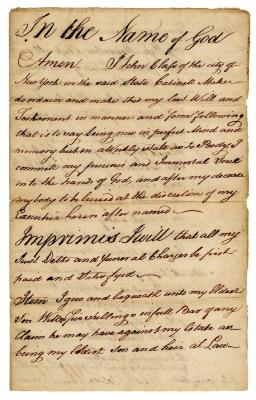 In the Name of God
Amen. I John Class of the city of
New York in the said State Cabinett Maker
do ordain and make this my last Will and
Testament in manner and form following
that is to say being now in perfect Mind and
memory but in a Weakly state as to Body I
commit my precious and Immortal Soul
into the hands of God, and after my decease
my body to be buried at the discretion of my
Executor herein after named
Imprimis I will that all my
Just Debts and Funeral Charges be first
paid and Satisfyed
Item I give and bequeath unto my Eldest
Son Shillings in full Bar of any
Claim he may have against my Estate as
being my Eldest Son and heir at Law